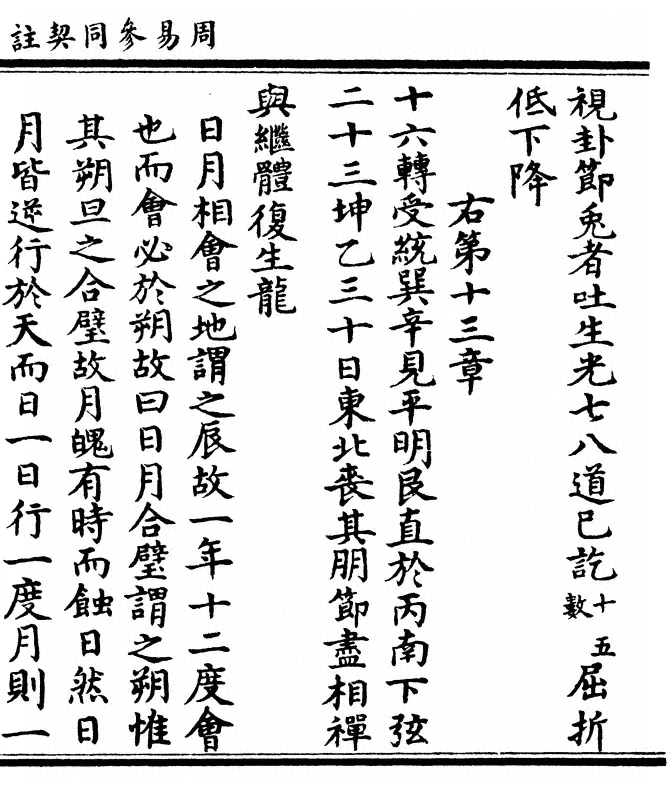 周易參同契註
視卦節兎者吐生光七八道已訖十五數屈折
低下降
右第十三章
十六轉受統巽辛見平明艮直於丙南下弦
二十三坤乙三十日東北喪其朋節盡相禪
與繼體復生龍
日月相會之地謂之辰故一年十二度會
也而會必於朔故曰日月合璧謂之朔惟
其朔旦之合璧故月魄有時而蝕日然日
月皆逆行於天而日一日行一度月則一